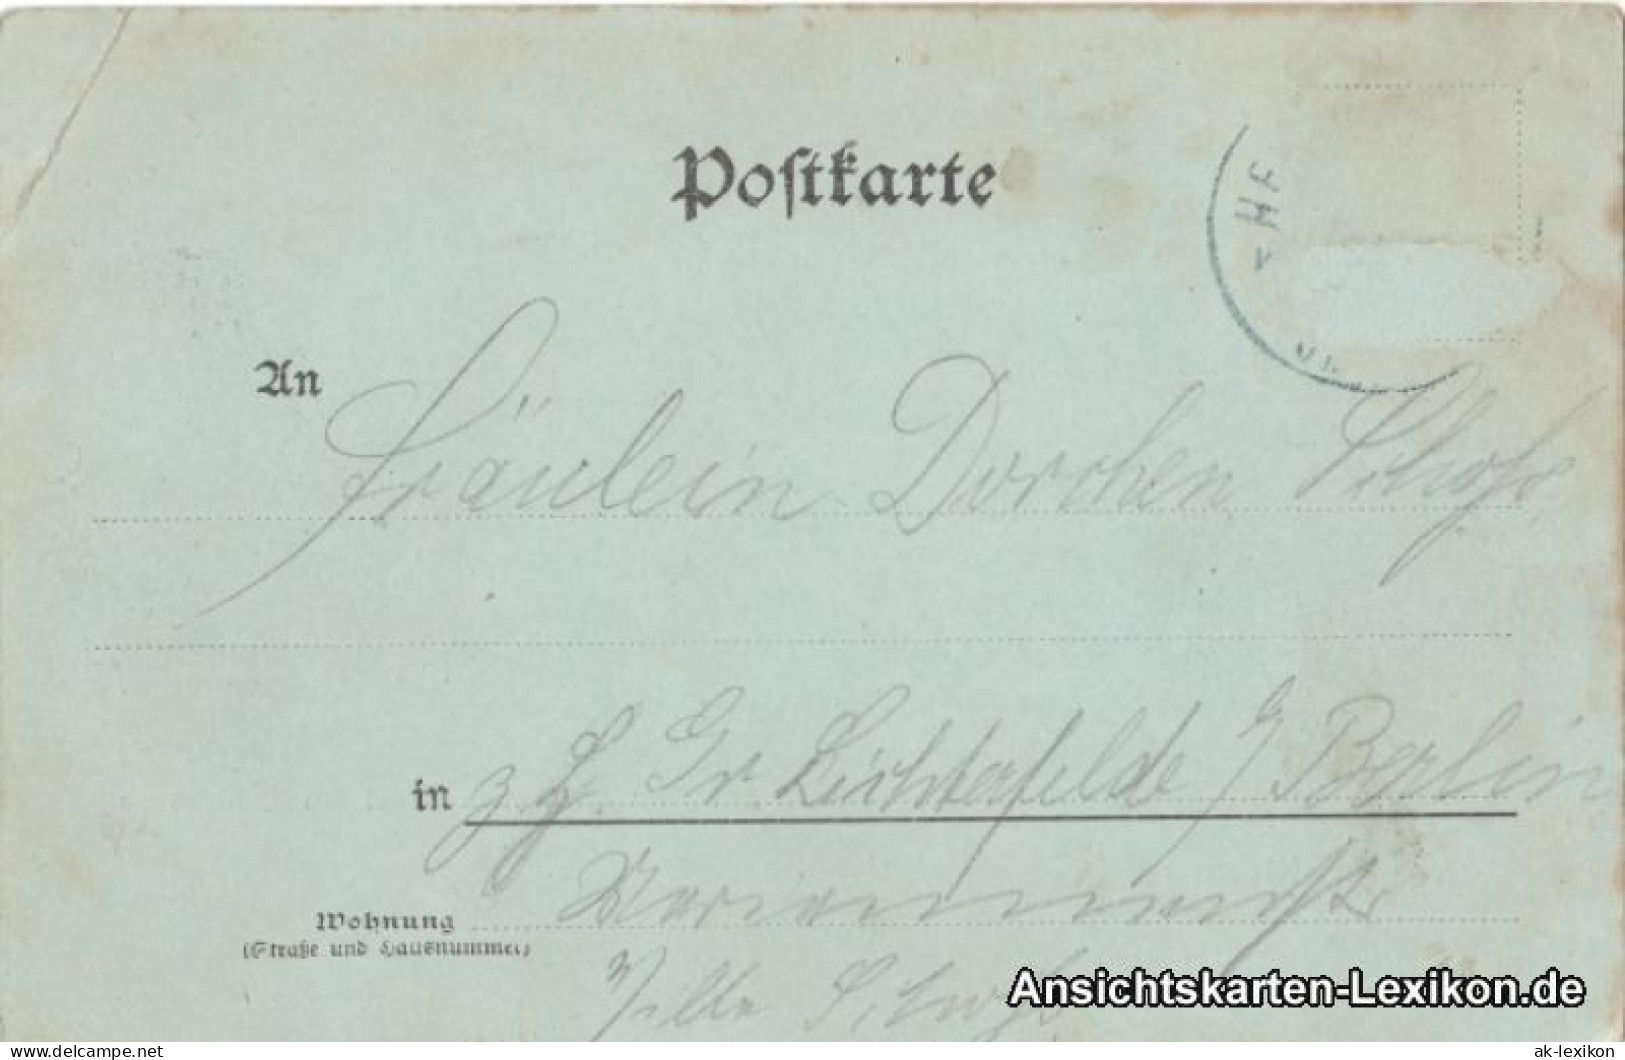 Postkarte
HE
An Fräulein Dorchen
in z. Z. Gr Lichterfelde b/ Berlin
Wohnung
(Straße und Hausnummer)
Villa
Ansichtskarten-Lexikon.de
delcampe.net
ak-lexikon